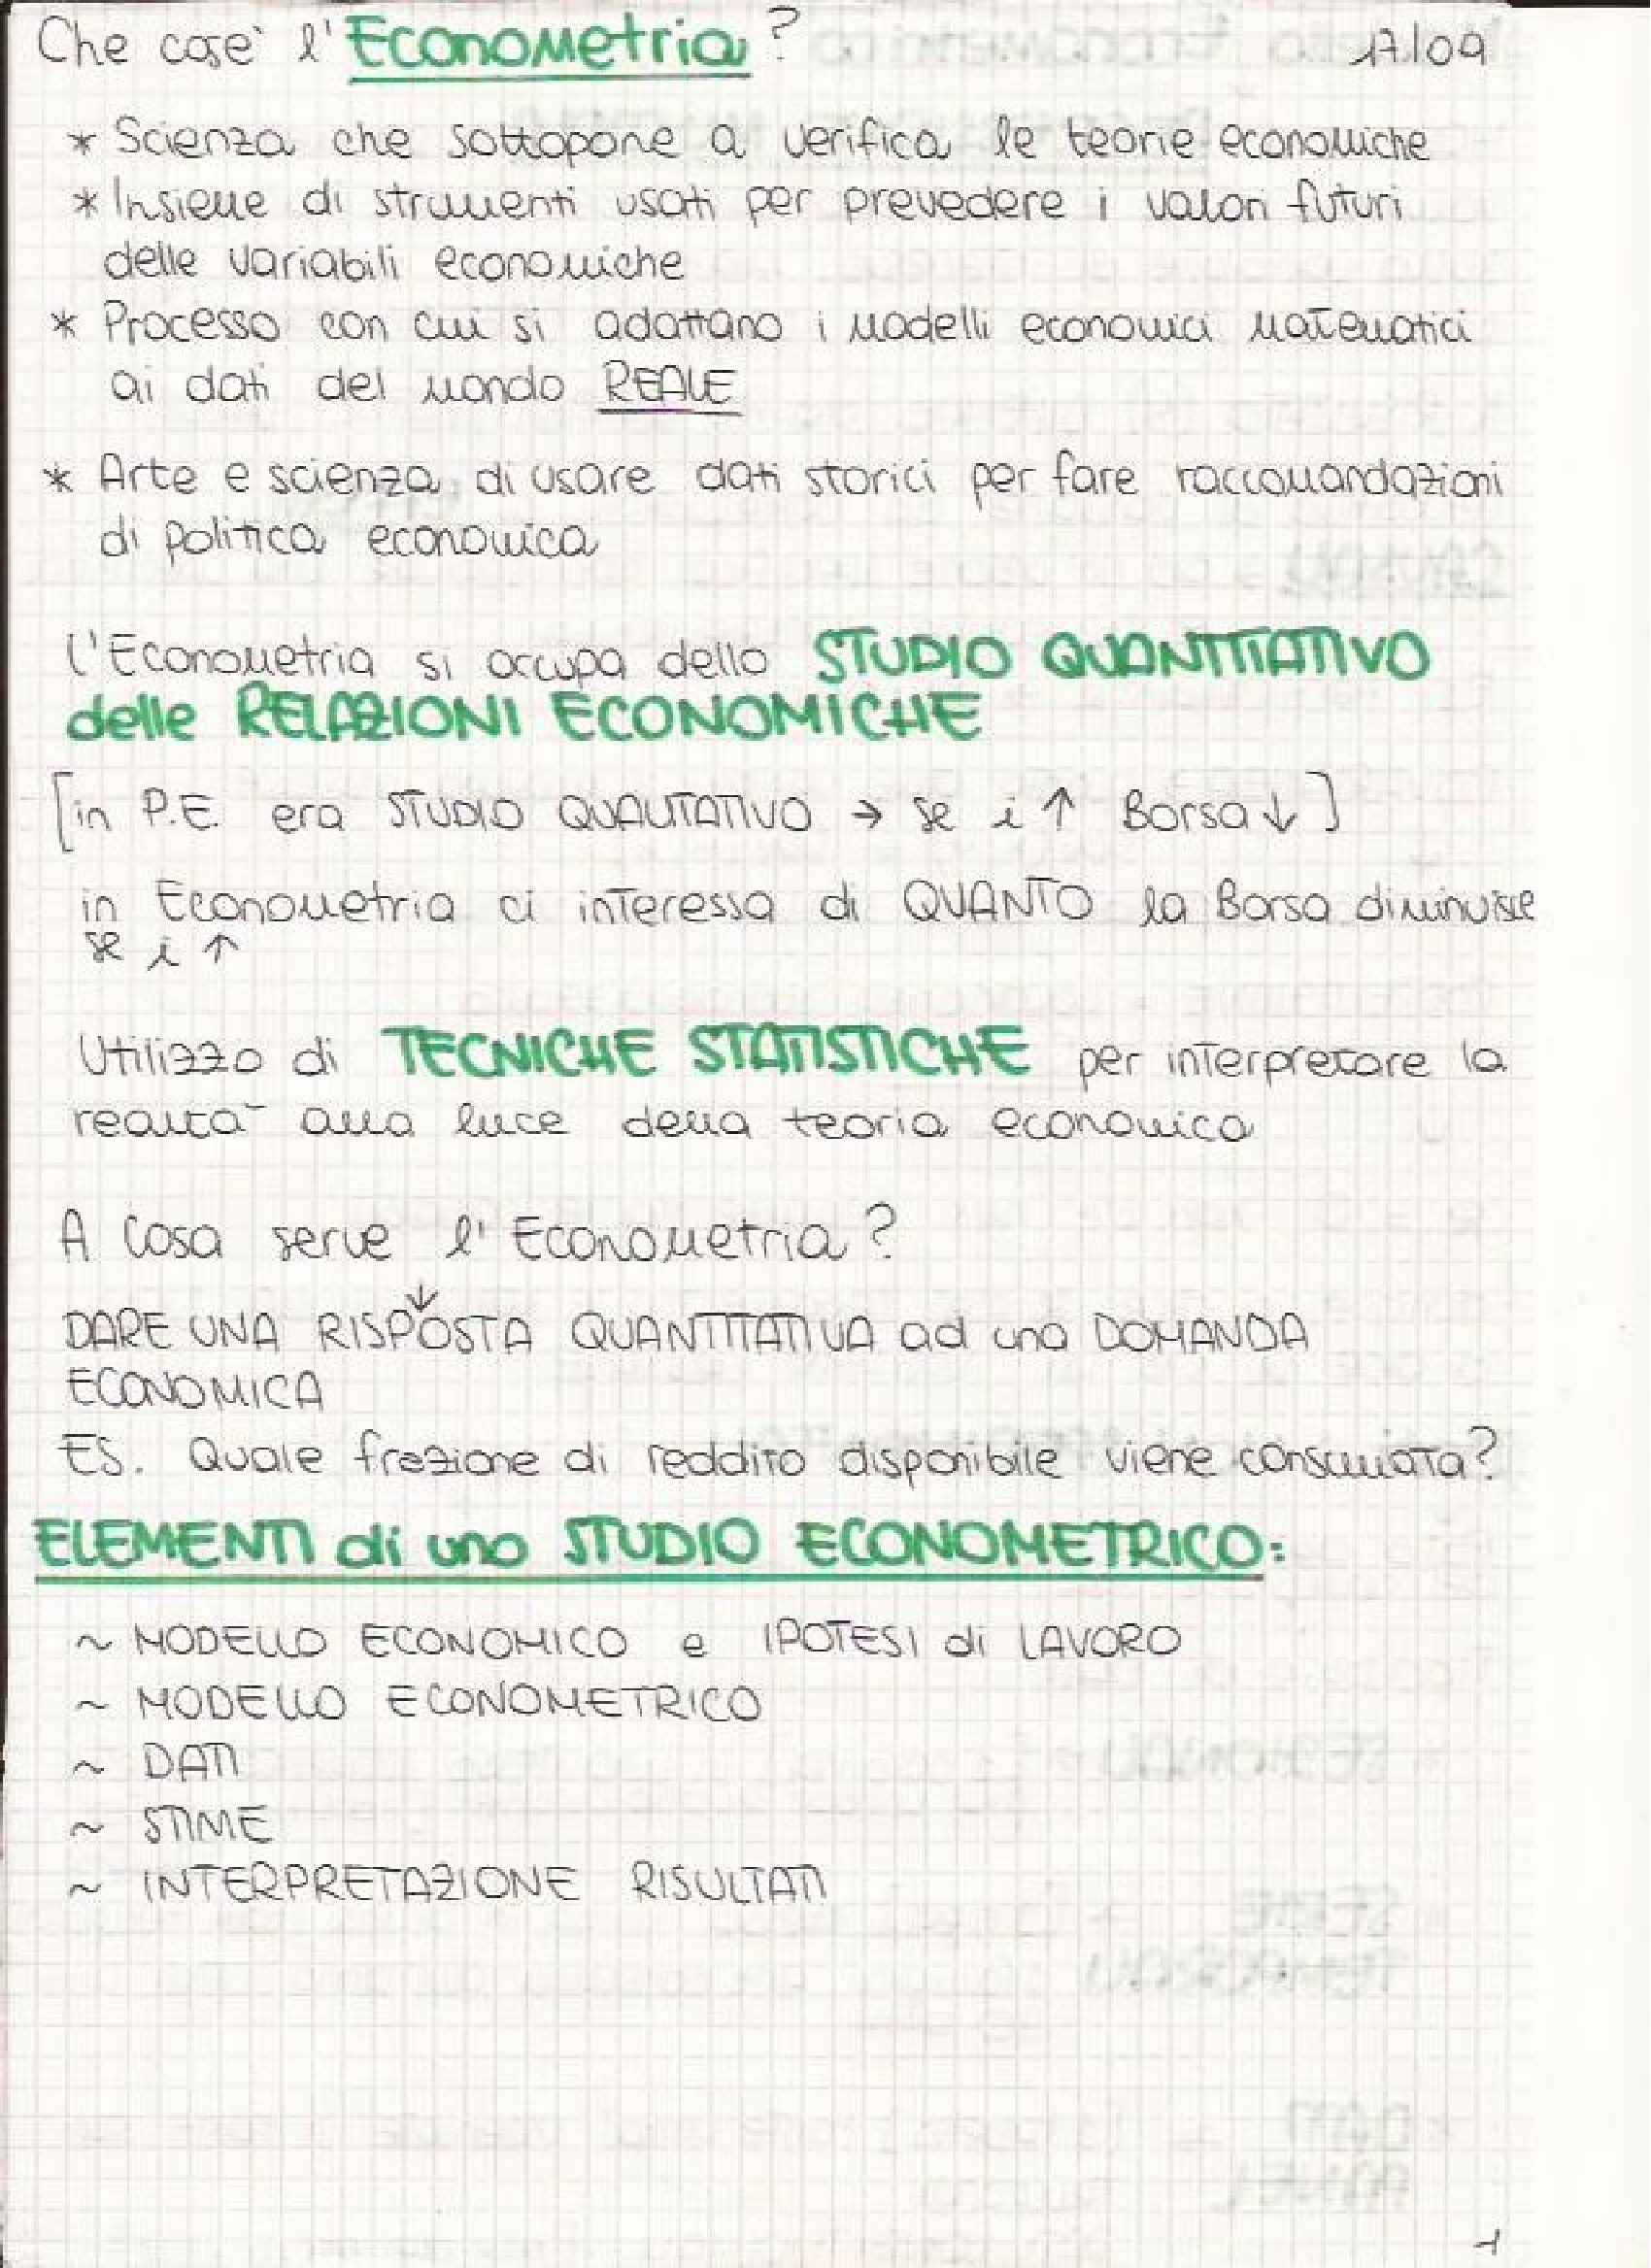 Che cos'è l'Econometria? 17/09
* Scienza che sottopone a verifica le teorie economiche
* Insieme di strumenti usati per prevedere i valori futuri
delle variabili economiche
* Processo con cui si adattano i modelli economici matematici
ai dati del mondo REALE
* Arte e scienza di usare dati storici per fare raccomandazioni
di politica economica
L'Econometria si occupa dello STUDIO QUANTITATIVO
delle RELAZIONI ECONOMICHE
[in P.E. era STUDIO QUALITATIVO → se i ↑ Borsa ↓]
in Econometria ci interessa di QUANTO la Borsa diminuisce
se i ↑
Utilizzo di TECNICHE STATISTICHE per interpretare la
realtà alla luce della teoria economica
A cosa serve l'Econometria?
↓
DARE UNA RISPOSTA QUANTITATIVA ad una DOMANDA
ECONOMICA
ES. Quale frazione di reddito disponibile viene consumata?
ELEMENTI di uno STUDIO ECONOMETRICO:
~ MODELLO ECONOMICO e IPOTESI di LAVORO
~ MODELLO ECONOMETRICO
~ DATI
~ STIME
~ INTERPRETAZIONE RISULTATI
1